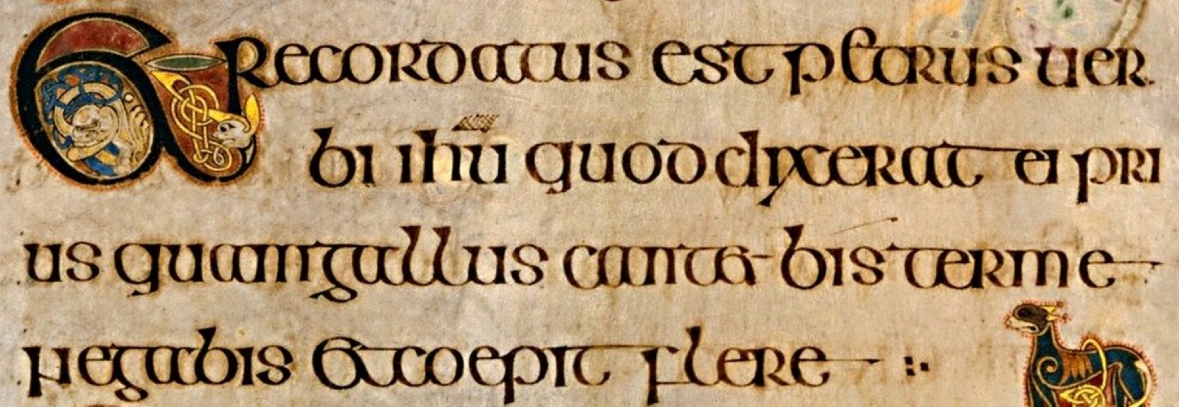 Et recordatus est petrus uer
bi ihū quod dixerat ei pri
us quam gallus cantet bis ter me
negabis et coepit flere :·